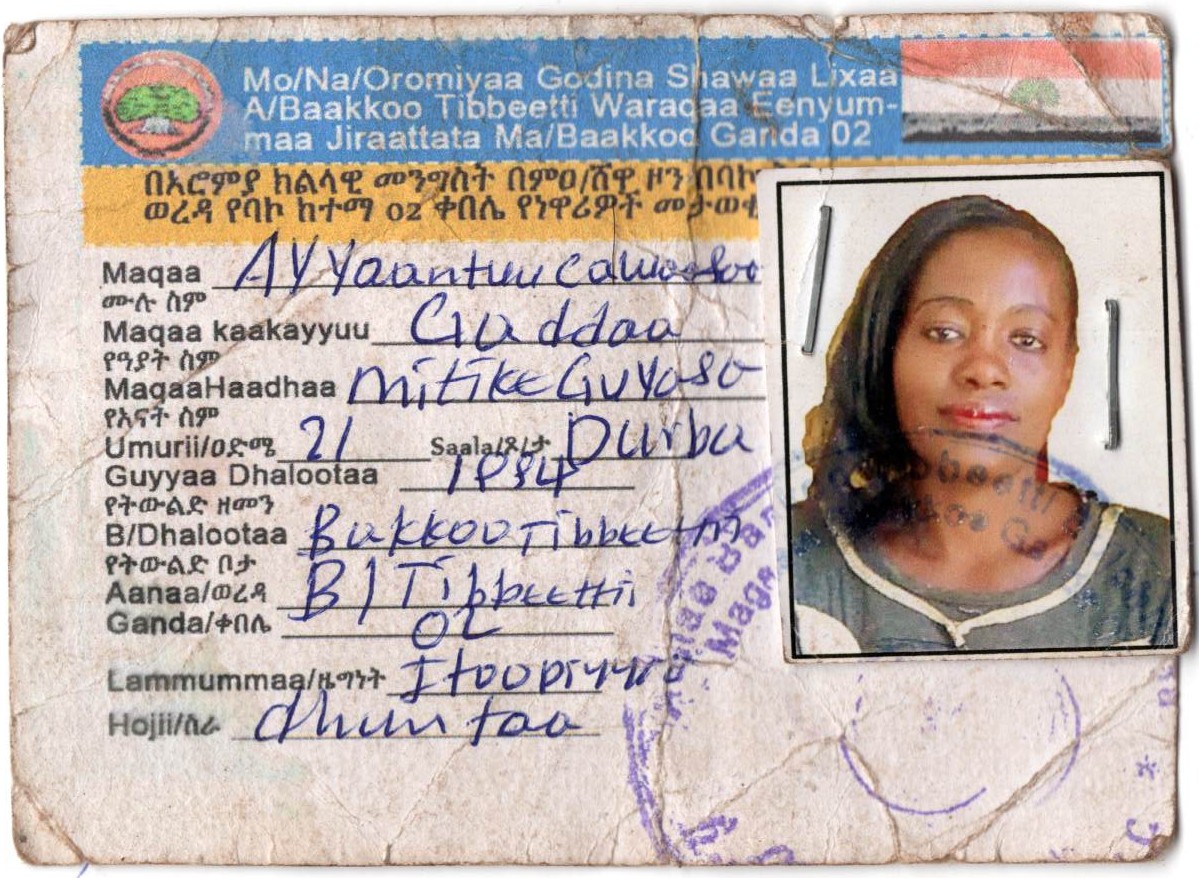 Mo/Na/Oromiyaa Godina Shawaa Lixaa
A/Baakkoo Tibbeetti Waraqaa Eenyum-
maa Jiraattata Ma/Baakkoo Ganda 02
በኦሮምያ ክልላዊ መንግስት በምዐ/ሸዋ ዞን በባኮ
ወረዳ የባኮ ከተማ 02 ቀበሌ የነዋሪዎች
Maqaa Ayyaantuu
ሙሉ ስም
Maqaa kaakayyuu Gaddaa
የዓያት ስም
MaqaaHaadhaa Mitike
የእናት ስም
Umurii/ዐድሜ 21 Saala/ጾ/ታ Durba
Guyyaa Dhalootaa
የትውልድ ዘመን
B/Dhalootaa Bakkoo Tibbeettii
የትውልድ ቦታ
Aanaa/ወረዳ B/Tibbeettii
Ganda/ቀበሌ 02
Lammummaa/ዜግነት Itoophiyaa
Hojii/ስራ